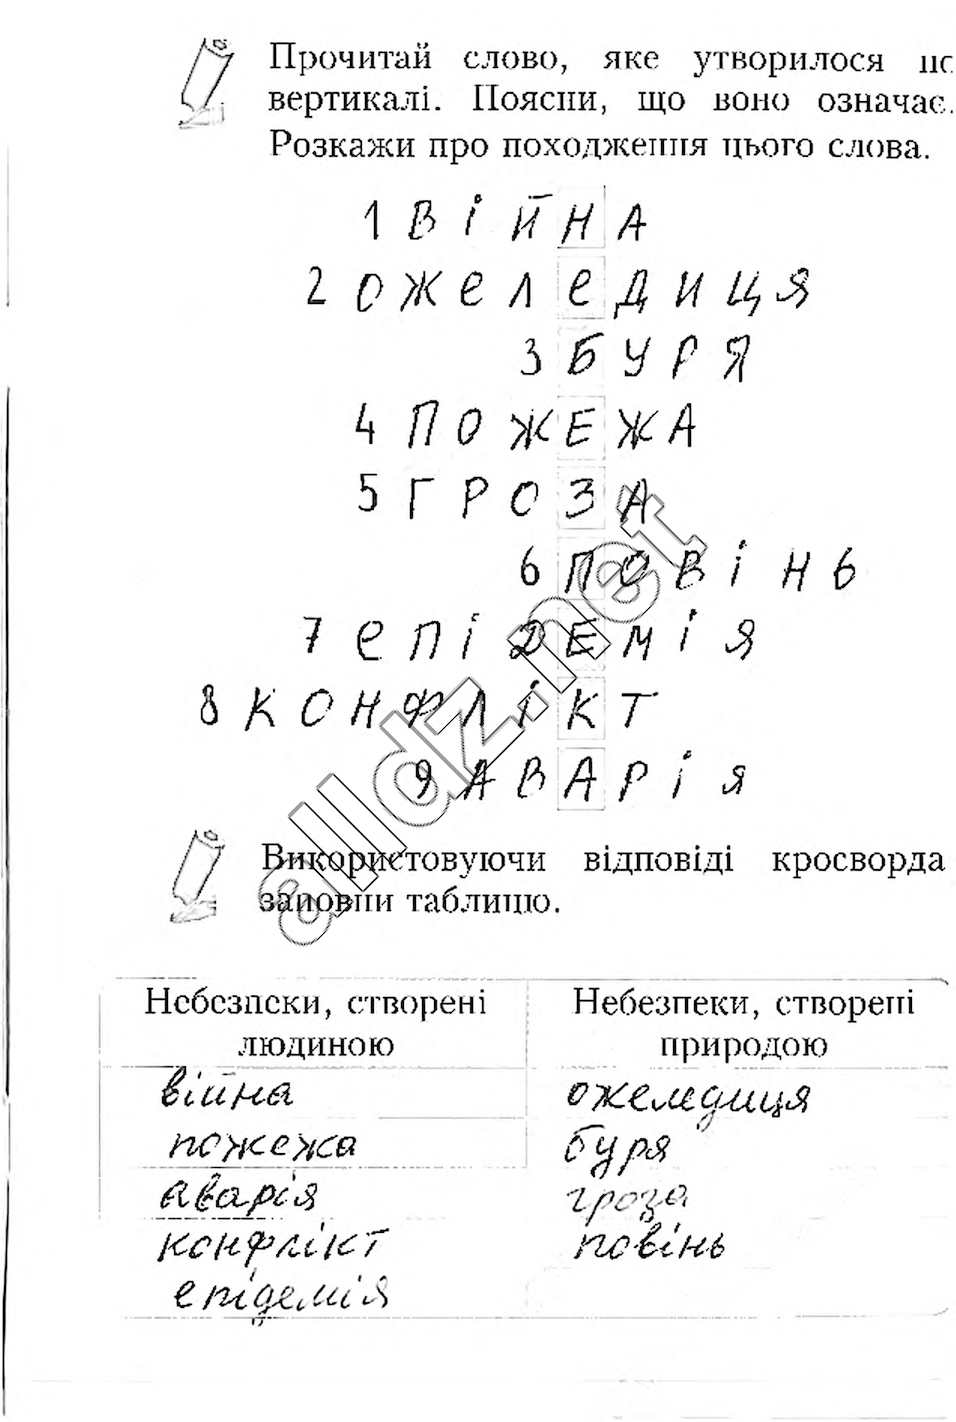 Прочитай слово, яке утворилося по
вертикалі. Поясни, що воно означає.
Розкажи про походження цього слова.
1 ВІЙНА
2 ОЖЕЛЕДИЦЯ
3 БУРЯ
4 ПОЖЕЖА
5 ГРОЗА
6 ПОВІНЬ
7 ЕПІДЕМІЯ
8 КОНФЛІКТ
9 АВАРІЯ
alldz.net
Використовуючи відповіді кросворда
заповни таблицю.
Небезпеки, створені людиною
Небезпеки, створені природою
війна ожеледиця
пожежа буря
аварія гроза
конфлікт повінь
епідемія